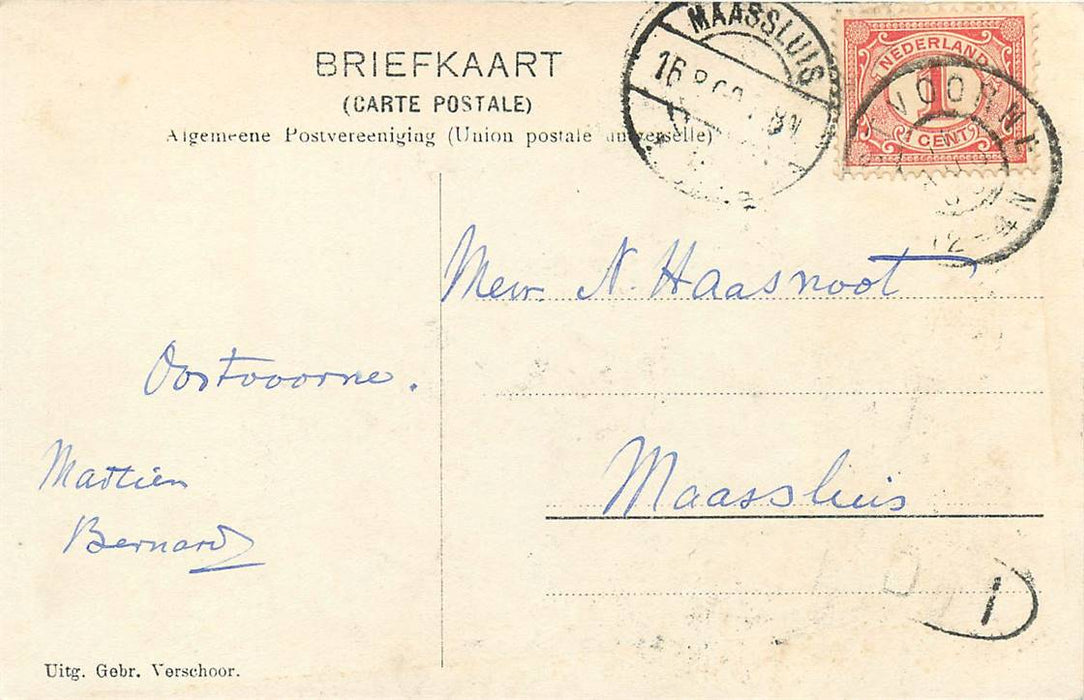 BRIEFKAART
(CARTE POSTALE)
Algemeene Postvereeniging (Union postale universelle)
MAASSLUIS
NEDERLAND
1
1 CENT
VOORNE
12-4N
Mevr. N. Haasnoot
Oostvoorne.
Maassluis
Martien
Bernard
1
Uitg. Gebr. Verschoor.